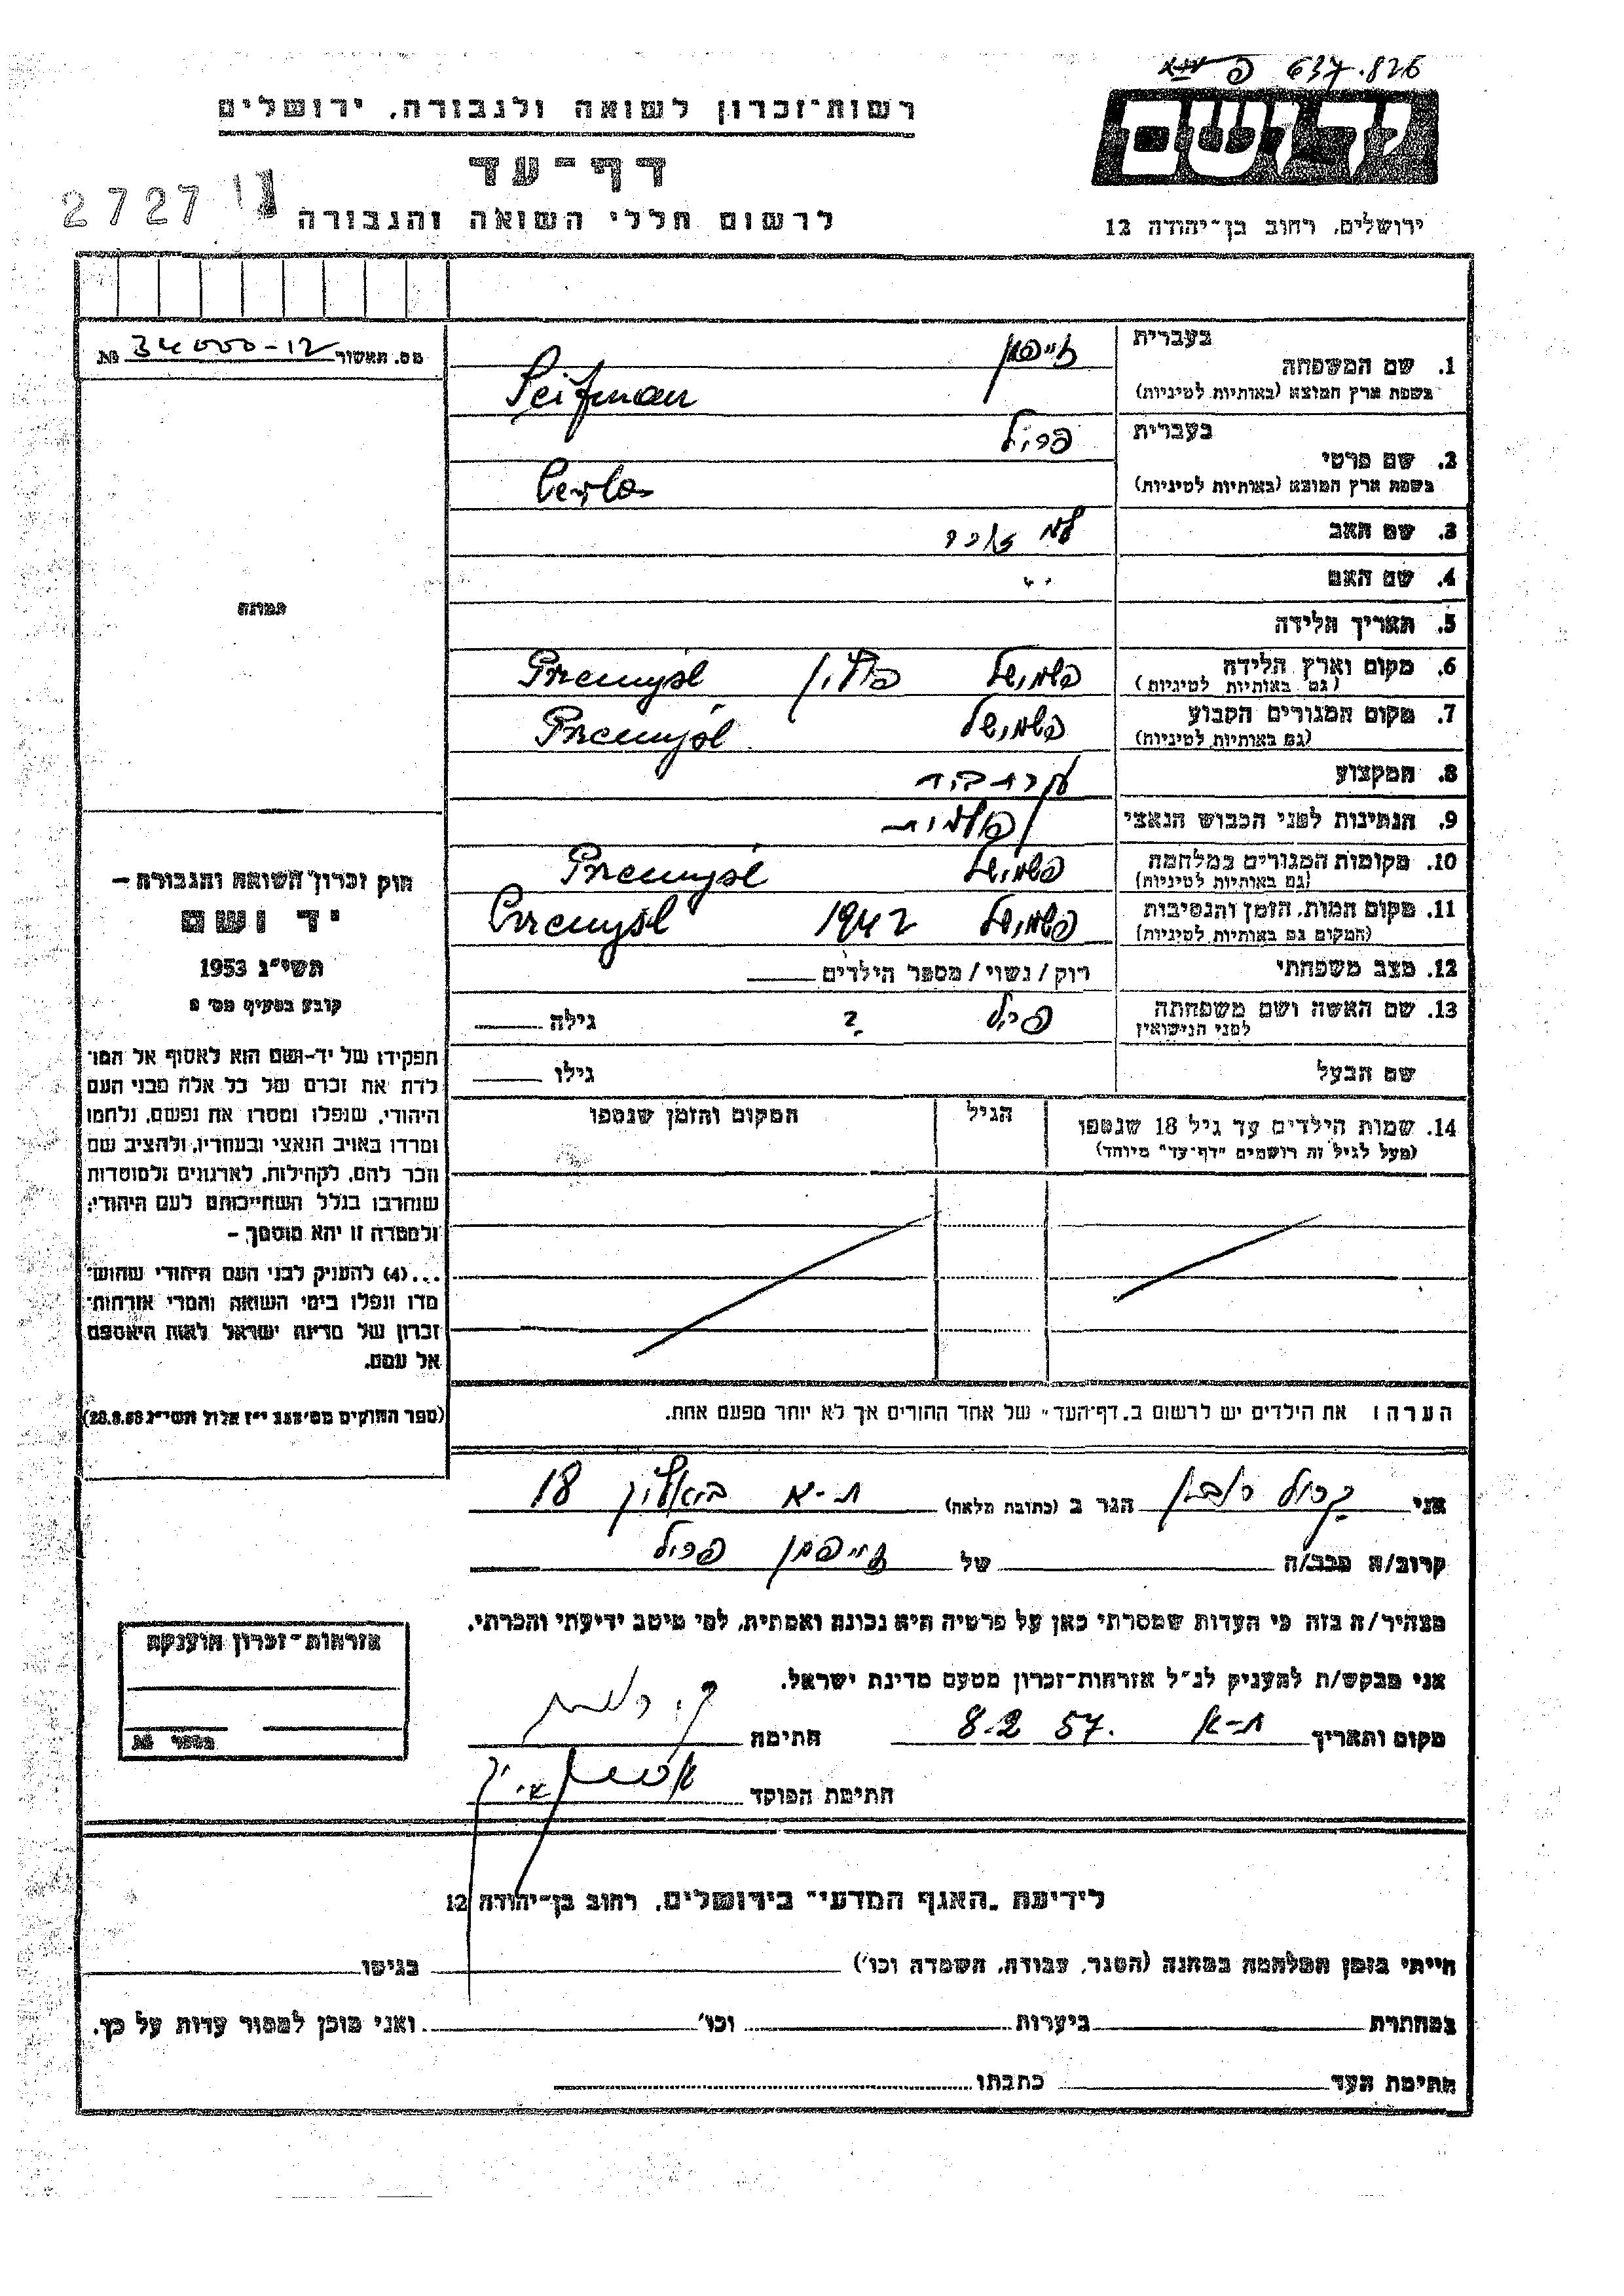 637.826
רשות־זכרון לשואה ולגבורה, ירושלים
יד ושם
דף־עד
2727
לרשום חללי השואה והגבורה
ירושלים, רחוב בן־יהודה 12
מס. האשור 34000-12 №
תמונה
בעברית
1. שם המשפחה זייפמן
בשפת ארץ המוצא (באותיות לטיניות) Seifman
בעברית פרול
2. שם פרטי
בשפת ארץ המוצא (באותיות לטיניות) Perla
3. שם האב לא זכור
4. שם האם ״
5. תאריך הלידה
6. מקום וארץ הלידה פשמישל פולין Przemyśl
(גם באותיות לטיניות)
7. מקום המגורים הקבוע פשמישל Przemyśl
(גם באותיות לטיניות)
8. המקצוע
9. הנתינות לפני הכבוש הנאצי פולנית
10. מקומות המגורים במלחמה פשמישל Przemyśl
(גם באותיות לטיניות)
11. מקום המות, הזמן והנסיבות פשמישל 1942 Przemyśl
(המקום גם באותיות לטיניות)
12. מצב משפחתי רוק / נשוי / מספר הילדים
13. שם האשה ושם משפחתה פרול ? גילה
לפני הנישואין
שם הבעל גילו
14. שמות הילדים עד גיל 18 שנספו הגיל המקום והזמן שנספו
(מעל לגיל זה רושמים "דף־עד" מיוחד)
הערה: את הילדים יש לרשום ב"דף־העד" של אחד ההורים אך לא יותר מפעם אחת.
חוק זכרון השואה והגבורה –
יד ושם
תשי"ג 1953
קובע בסעיף מס' 2
תפקידו של יד-ושם הוא לאסוף אל המו־
לדת את זכרם של כל אלה מבני העם
היהודי, שנפלו ומסרו את נפשם, נלחמו
ומרדו באויב הנאצי ובעוזריו, ולהציב שם
וזכר להם, לקהילות, לארגונים ולמוסדות
שנחרבו בגלל השתייכותם לעם היהודי;
ולמטרה זו יהא מוסמך –
...(4) להעניק לבני העם היהודי שהוש־
מדו ונפלו בימי השואה והמרי אזרחות־
זכרון של מדינת ישראל לאות היאספם
אל עמם.
(ספר החוקים מס' 132 י"ז אלול תשי"ג 28.8.53)
אני הגר ב (כתובת מלאה) ת-א 18
קרוב/ה מכב/ה של זייפמן פרול
מצהיר/ה בזה כי העדות שמסרתי כאן על פרטיה היא נכונה ואמתית, לפי מיטב ידיעתי והכרתי.
אני מבקש/ת להעניק לנ"ל אזרחות־זכרון מטעם מדינת ישראל.
מקום ותאריך ת-א 8.2 57. חתימה
חתימת הפוקד
אזרחות־זכרון הוענקה
מספר №
לידיעת "האגף המדעי" בירושלים, רחוב בן־יהודה 12
הייתי בזמן המלחמה במחנה (הסגר, עבודה, השמדה וכו') בגיטו
במחתרת ביערות וכו' ואני מוכן למסור עדות על כך.
חתימת העד כתבתו